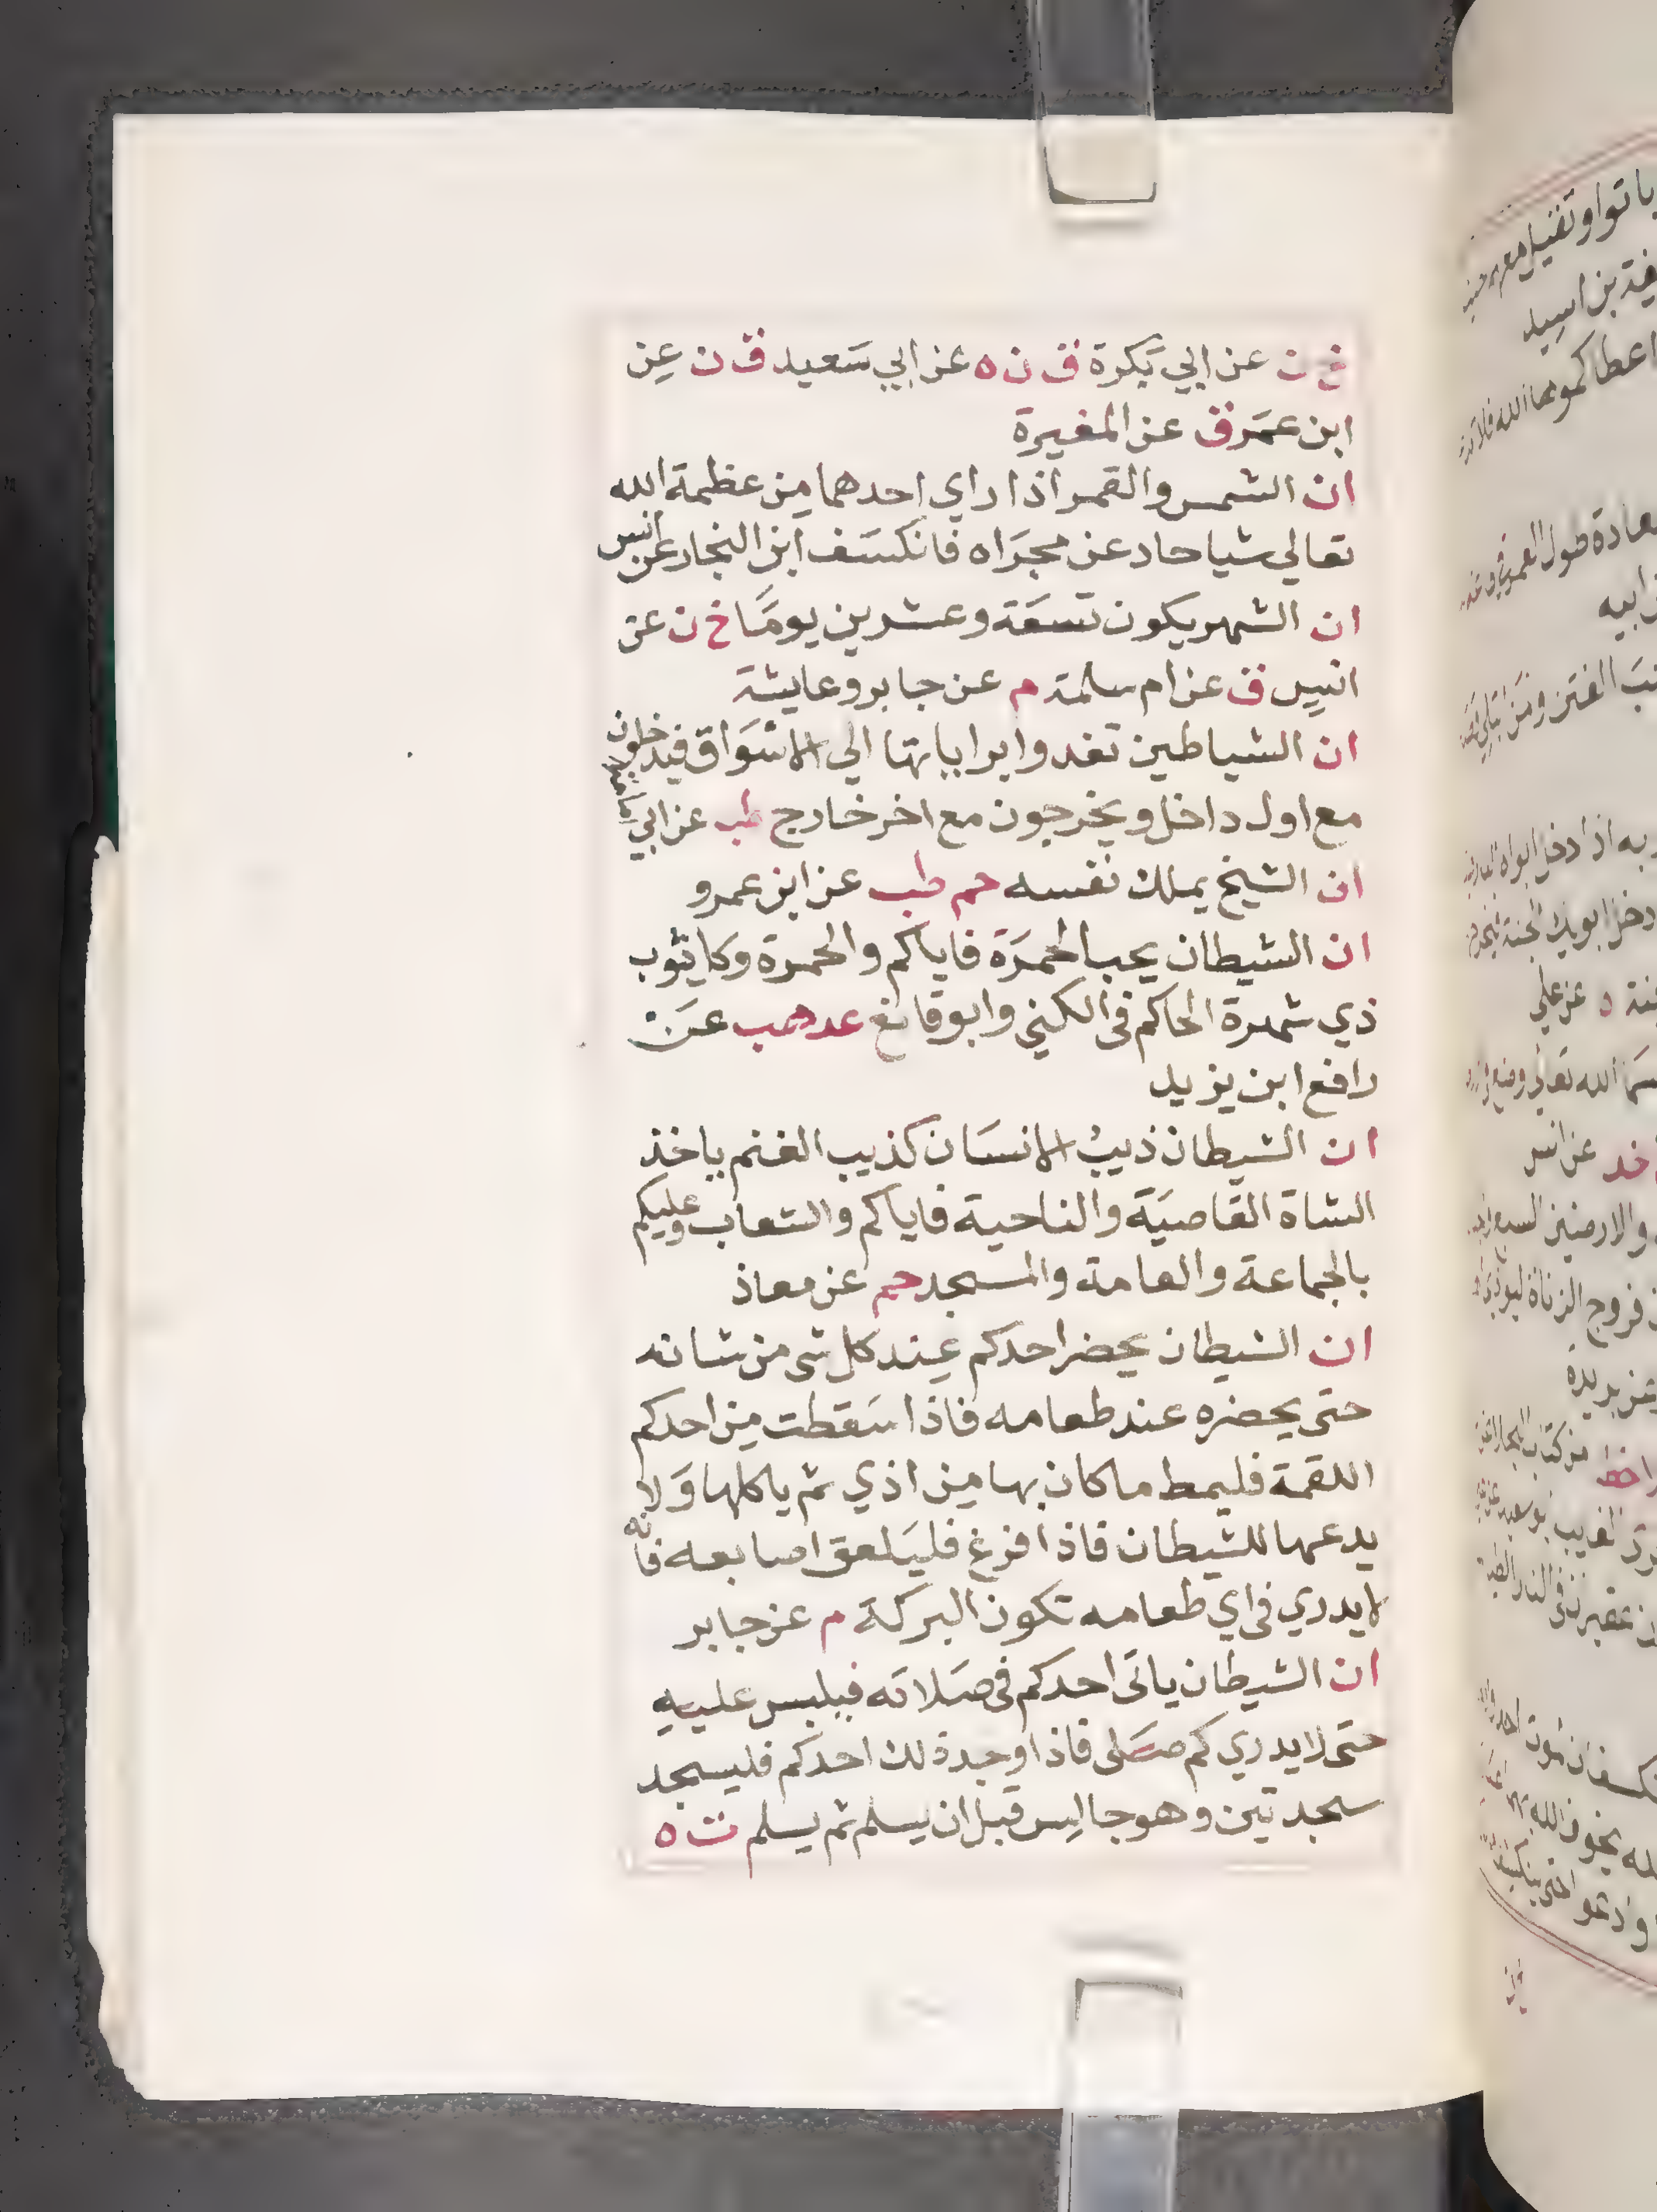 خ ن عن ابي بكرة ق ن ه عن ابي سعيد ق ن عن
ابن عمر ق عن المغيرة
ان الشمس والقمر اذا راي احدهما من عظمة الله
تعالي شيا حاد عن مجراه فانكسف ابن النجار عن انس
ان الشهر يكون تسعة وعشرين يوما خ ن عن
انس ق عن ام سلمة م عن جابر وعايشة
ان الشياطين تغدوا براياتها الي الاسواق فيدخلون
مع اول داخل ويخرجون مع اخر خارج طب عن ابي امامة
ان الشيخ يملك نفسه حم طب عن ابن عمرو
ان الشيطان يحب الحمرة فاياكم والحمرة وكل ثوب
ذي شهرة الحاكم في الكني وابو قانع عد هب عن
رافع ابن يزيد
ان الشيطان ذيب الانسان كذيب الغنم ياخذ
الشاة القاصية والناحية فاياكم والشعاب وعليكم
بالجماعة والعامة والمسجد حم عن معاذ
ان الشيطان يحضر احدكم عند كل شي من شانه
حتى يحضره عند طعامه فاذا سقطت من احدكم
اللقمة فليمط ما كان بها من اذي ثم ياكلها ولا
يدعها للشيطان فاذا فرغ فليلعق اصابعه فانه
لا يدري في اي طعامه تكون البركة م عن جابر
ان الشيطان ياتي احدكم في صلاته فيلبس عليه
حتى لا يدري كم صلى فاذا وجد ذلك احدكم فليسجد
سجدتين وهو جالس قبل ان يسلم ثم يسلم ت ه